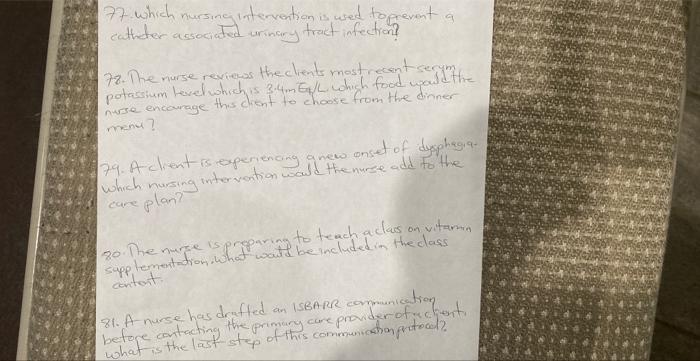 77. which nursing intervention is used to prevent a
catheter associated urinary tract infection?
78. The nurse reviews the clients most recent serum
potassium level which is 3.4mEq/L which food would the
nurse encourage this client to choose from the dinner
menu?
79. A client is experiencing a new onset of dysphagia.
which nursing intervention would the nurse add to the
care plan?
80. The nurse is preparing to teach a class on vitamin
supplementation. what would be included in the class
content.
81. A nurse has drafted an ISBARR communication
before contacting the primary care provider of a client.
what is the last step of this communication protocol?